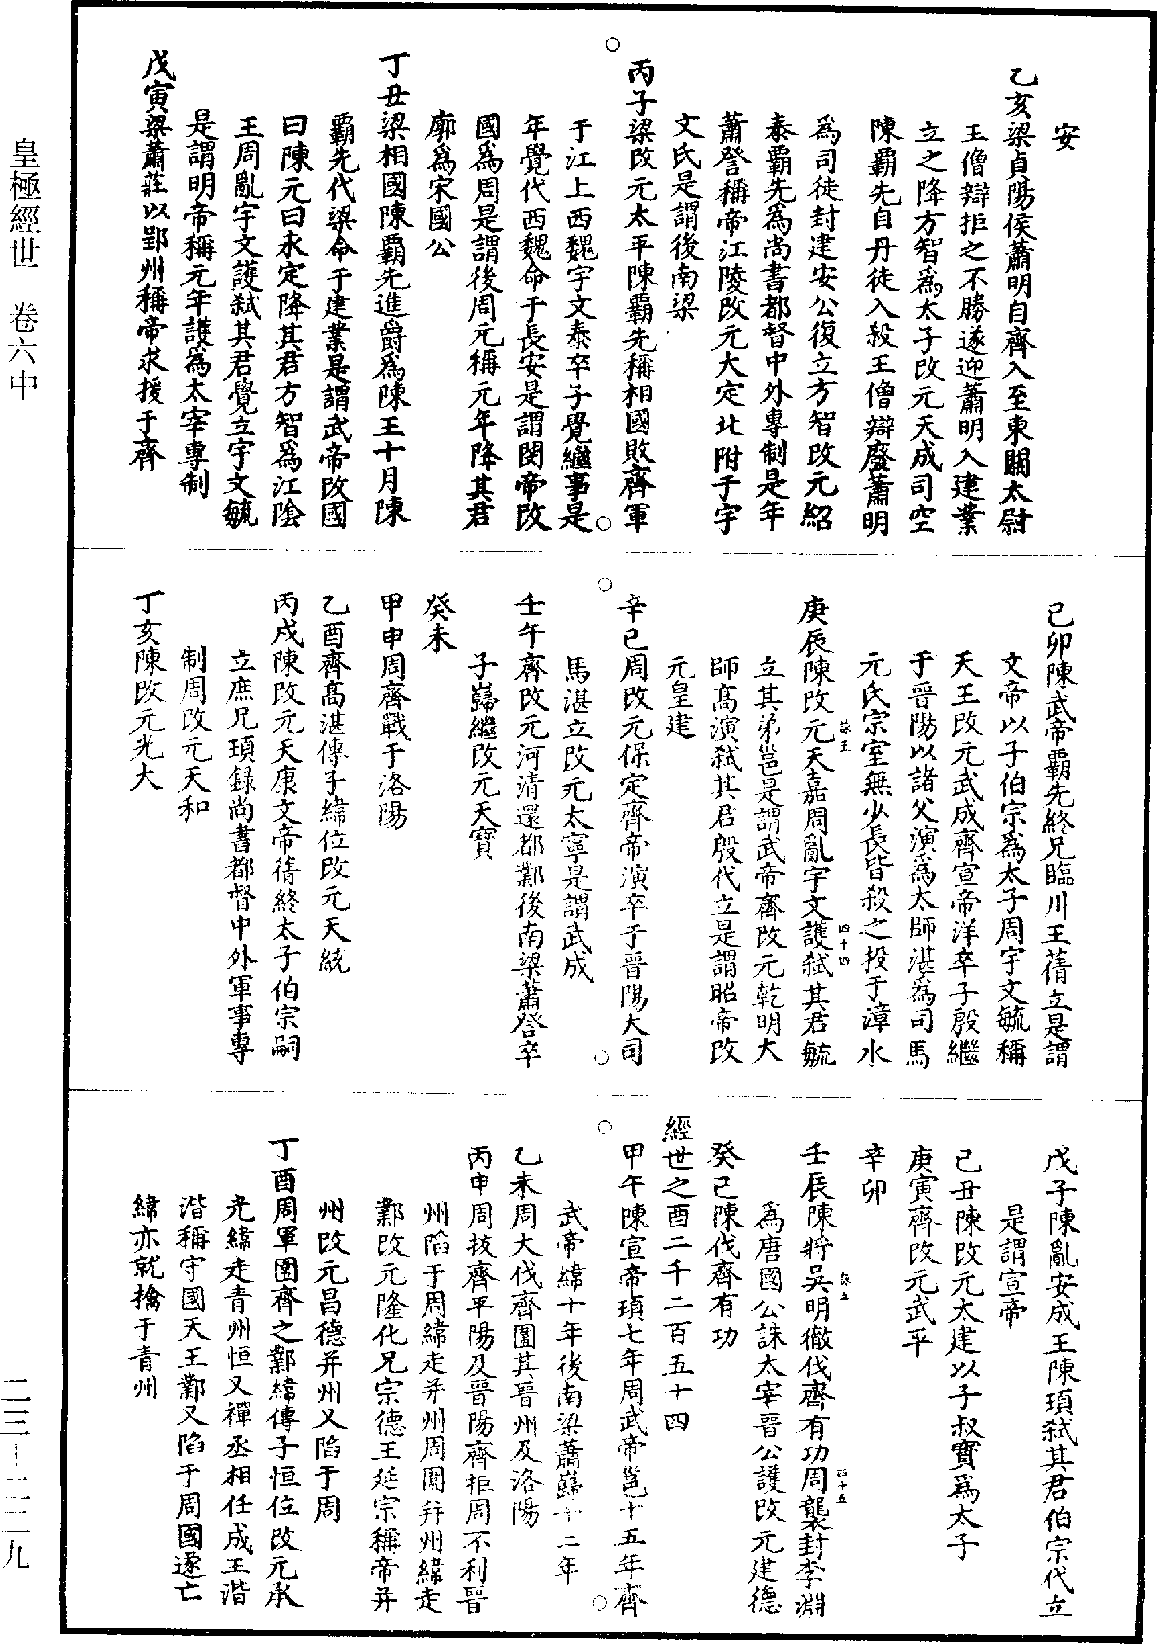 皇極經世　卷六中
二三－二二九
安
乙亥梁貞陽侯蕭明自齊入至東關太尉
王僧辯拒之不勝遂迎蕭明入建業
立之降方智爲太子改元天成司空
陳霸先自丹徒入殺王僧辯廢蕭明
爲司徒封建安公復立方智改元紹
泰霸先爲尚書都督中外專制是年
蕭詧稱帝江陵改元大定北附于宇
文氏是謂後南梁
丙子梁改元太平陳霸先稱相國敗齊軍
于江上西魏宇文泰卒子覺繼事是
年覺代西魏命于長安是謂閔帝改
國爲周是謂後周元稱元年降其君
廓爲宋國公
丁丑梁相國陳霸先進爵爲陳王十月陳
霸先代梁命于建業是謂武帝改國
曰陳元曰永定降其君方智爲江陰
王周亂宇文護弒其君覺立宇文毓
是謂明帝稱元年護爲太宰專制
戊寅梁蕭莊以郢州稱帝求援于齊
己卯陳武帝霸先終兄臨川王蒨立是謂
文帝以子伯宗爲太子周宇文毓稱
天王改元武成齊宣帝洋卒子殷繼
于晉陽以諸父演爲太師湛爲司馬
元氏宗室無少長皆殺之投于漳水
庚辰陳改元天嘉周亂宇文護弒其君毓
立其弟邕是謂武帝齊改元乾明大
師高演弒其君殷代立是謂昭帝改
元皇建
辛巳周改元保定齊帝演卒于晉陽大司
馬湛立改元太寧是謂武成
壬午齊改元河清還都鄴後南梁蕭詧卒
子巋繼改元天寶
癸未
甲申周齊戰于洛陽
乙酉齊高湛傳子緯位改元天統
丙戌陳改元天康文帝蒨終太子伯宗嗣
立庶兄頊録尚書都督中外軍事專
制周改元天和
丁亥陳改元光大
戊子陳亂安成王陳頊弒其君伯宗代立
是謂宣帝
己丑陳改元太建以子叔寶爲太子
庚寅齊改元武平
辛卯
壬辰陳將吳明徹伐齊有功周襲封李淵
爲唐國公誅太宰晉公護改元建德
癸巳陳伐齊有功
經世之酉二千二百五十四
甲午陳宣帝頊七年周武帝邕十五年齊
武帝緯十年後南梁蕭巋十二年
乙未周大伐齊圍其晉州及洛陽
丙申周拔齊平陽及晉陽齊拒周不利晉
州陷于周緯走并州周圍并州緯走
鄴改元隆化兄宗德王延宗稱帝并
州改元昌德并州又陷于周
丁酉周軍圍齊之鄴緯傳子恒位改元承
光緯走青州恒又禪丞相任成王湝
湝稱守國天王鄴又陷于周國遂亡
緯亦就擒于青州